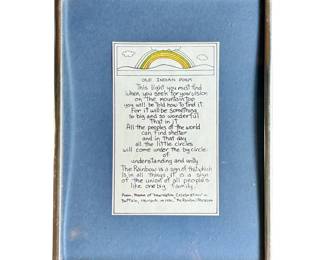 OLD INDIAN POEM
This light you must find
when you seek for your vision
on the mountain top
you will be told how to find it.
For it will be something
so big and so wonderful
That in it
All the peoples of the world
can find shelter
and in that day
all the little circles
will come under the big circle
of
understanding and unity
The Rainbow is a sign of that which
is in all things, it is a sign
of the union of all peoples
like one big family.
Poem, theme of Celebration in
Buffalo, in